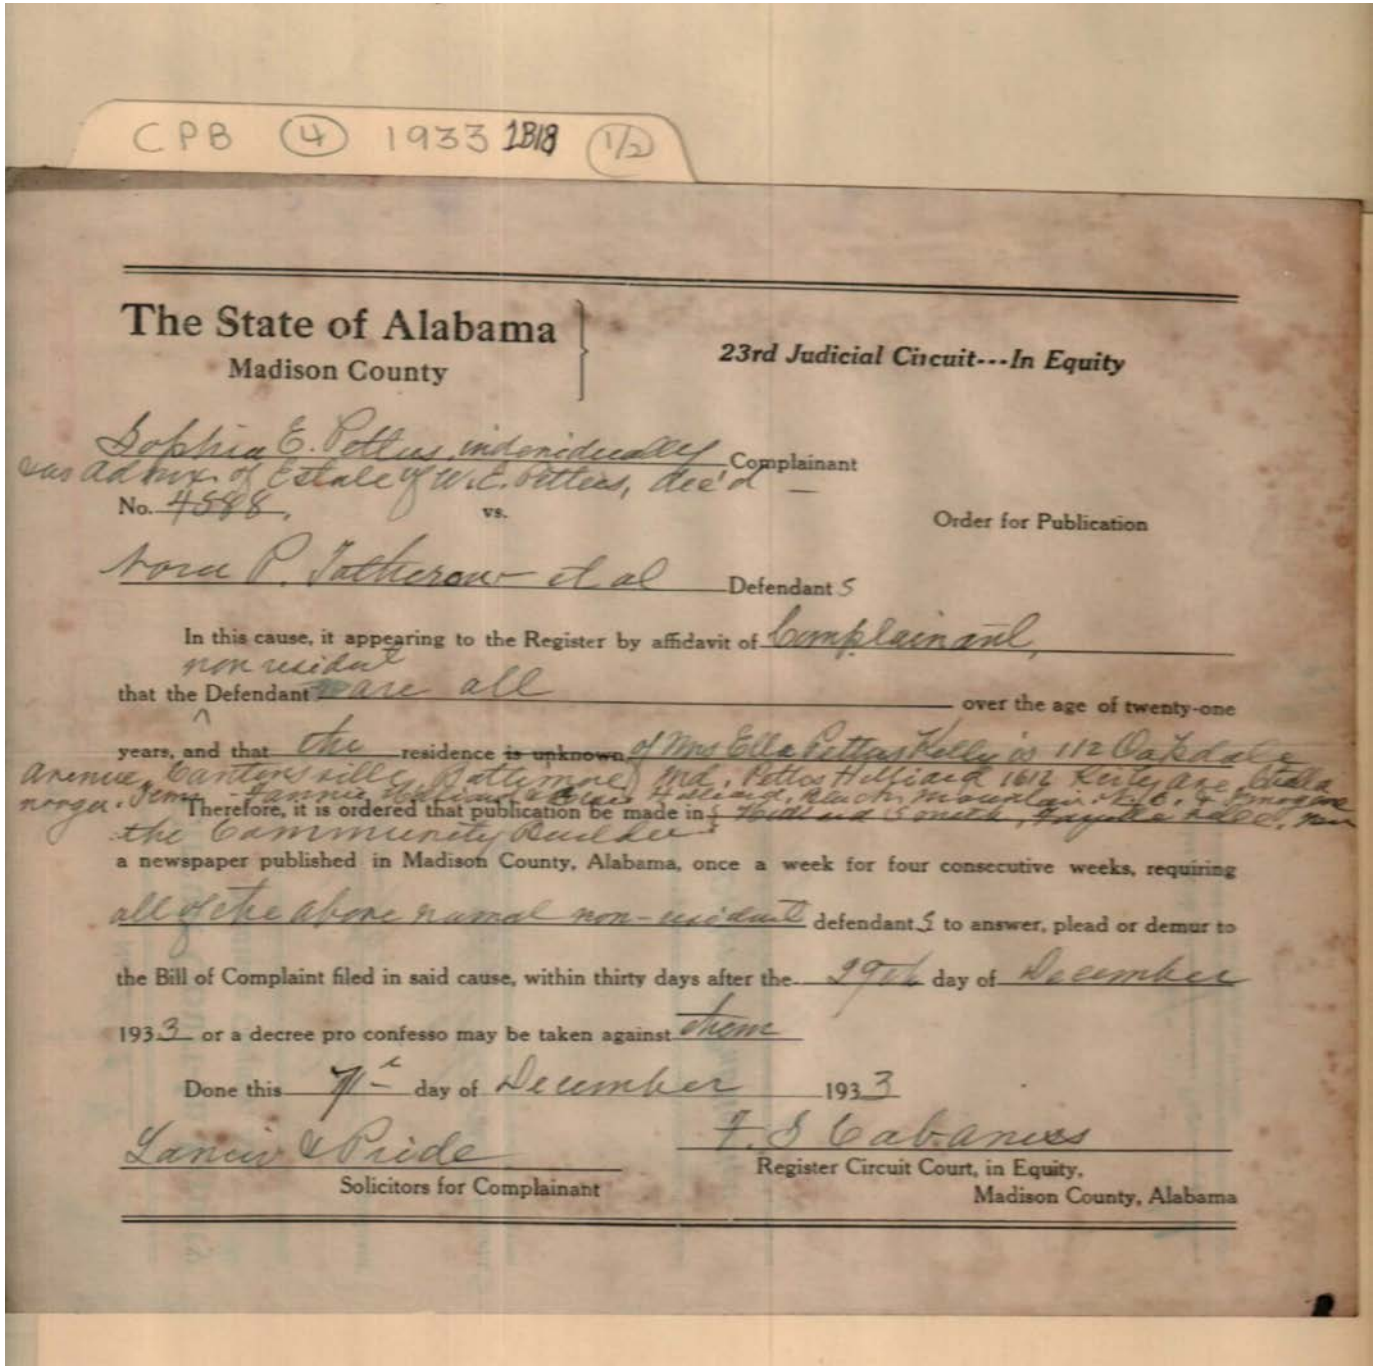 CPB 4 1933 1B18 1/2
The State of Alabama
Madison County
23rd Judicial Circuit---In Equity
Sophia E. Pettus, individually Complainant
& as Admx. of Estate of W. E. Pettus, dec'd —
No. 4588. vs.
Order for Publication
Nora P. et al Defendant s
In this cause, it appearing to the Register by affidavit of Complainant,
non resident
that the Defendant s are all over the age of twenty-one
years, and that the residence is unknown of Mrs Ella Pettus Kelly is 112 Oakdale
Avenue, Baltimore, Md, Pettus Hilliard 1612 Ave,
Tenn. Fannie Hilliard, Mountain, N.C. &
Therefore, it is ordered that publication be made in
the Community Builder
a newspaper published in Madison County, Alabama, once a week for four consecutive weeks, requiring
all of the above named non-resident defendant s to answer, plead or demur to
the Bill of Complaint filed in said cause, within thirty days after the 29th day of December
1933 or a decree pro confesso may be taken against them
Done this day of December 1933
Lanier & Pride
F. S Cabaniss
Solicitors for Complainant
Register Circuit Court, in Equity,
Madison County, Alabama